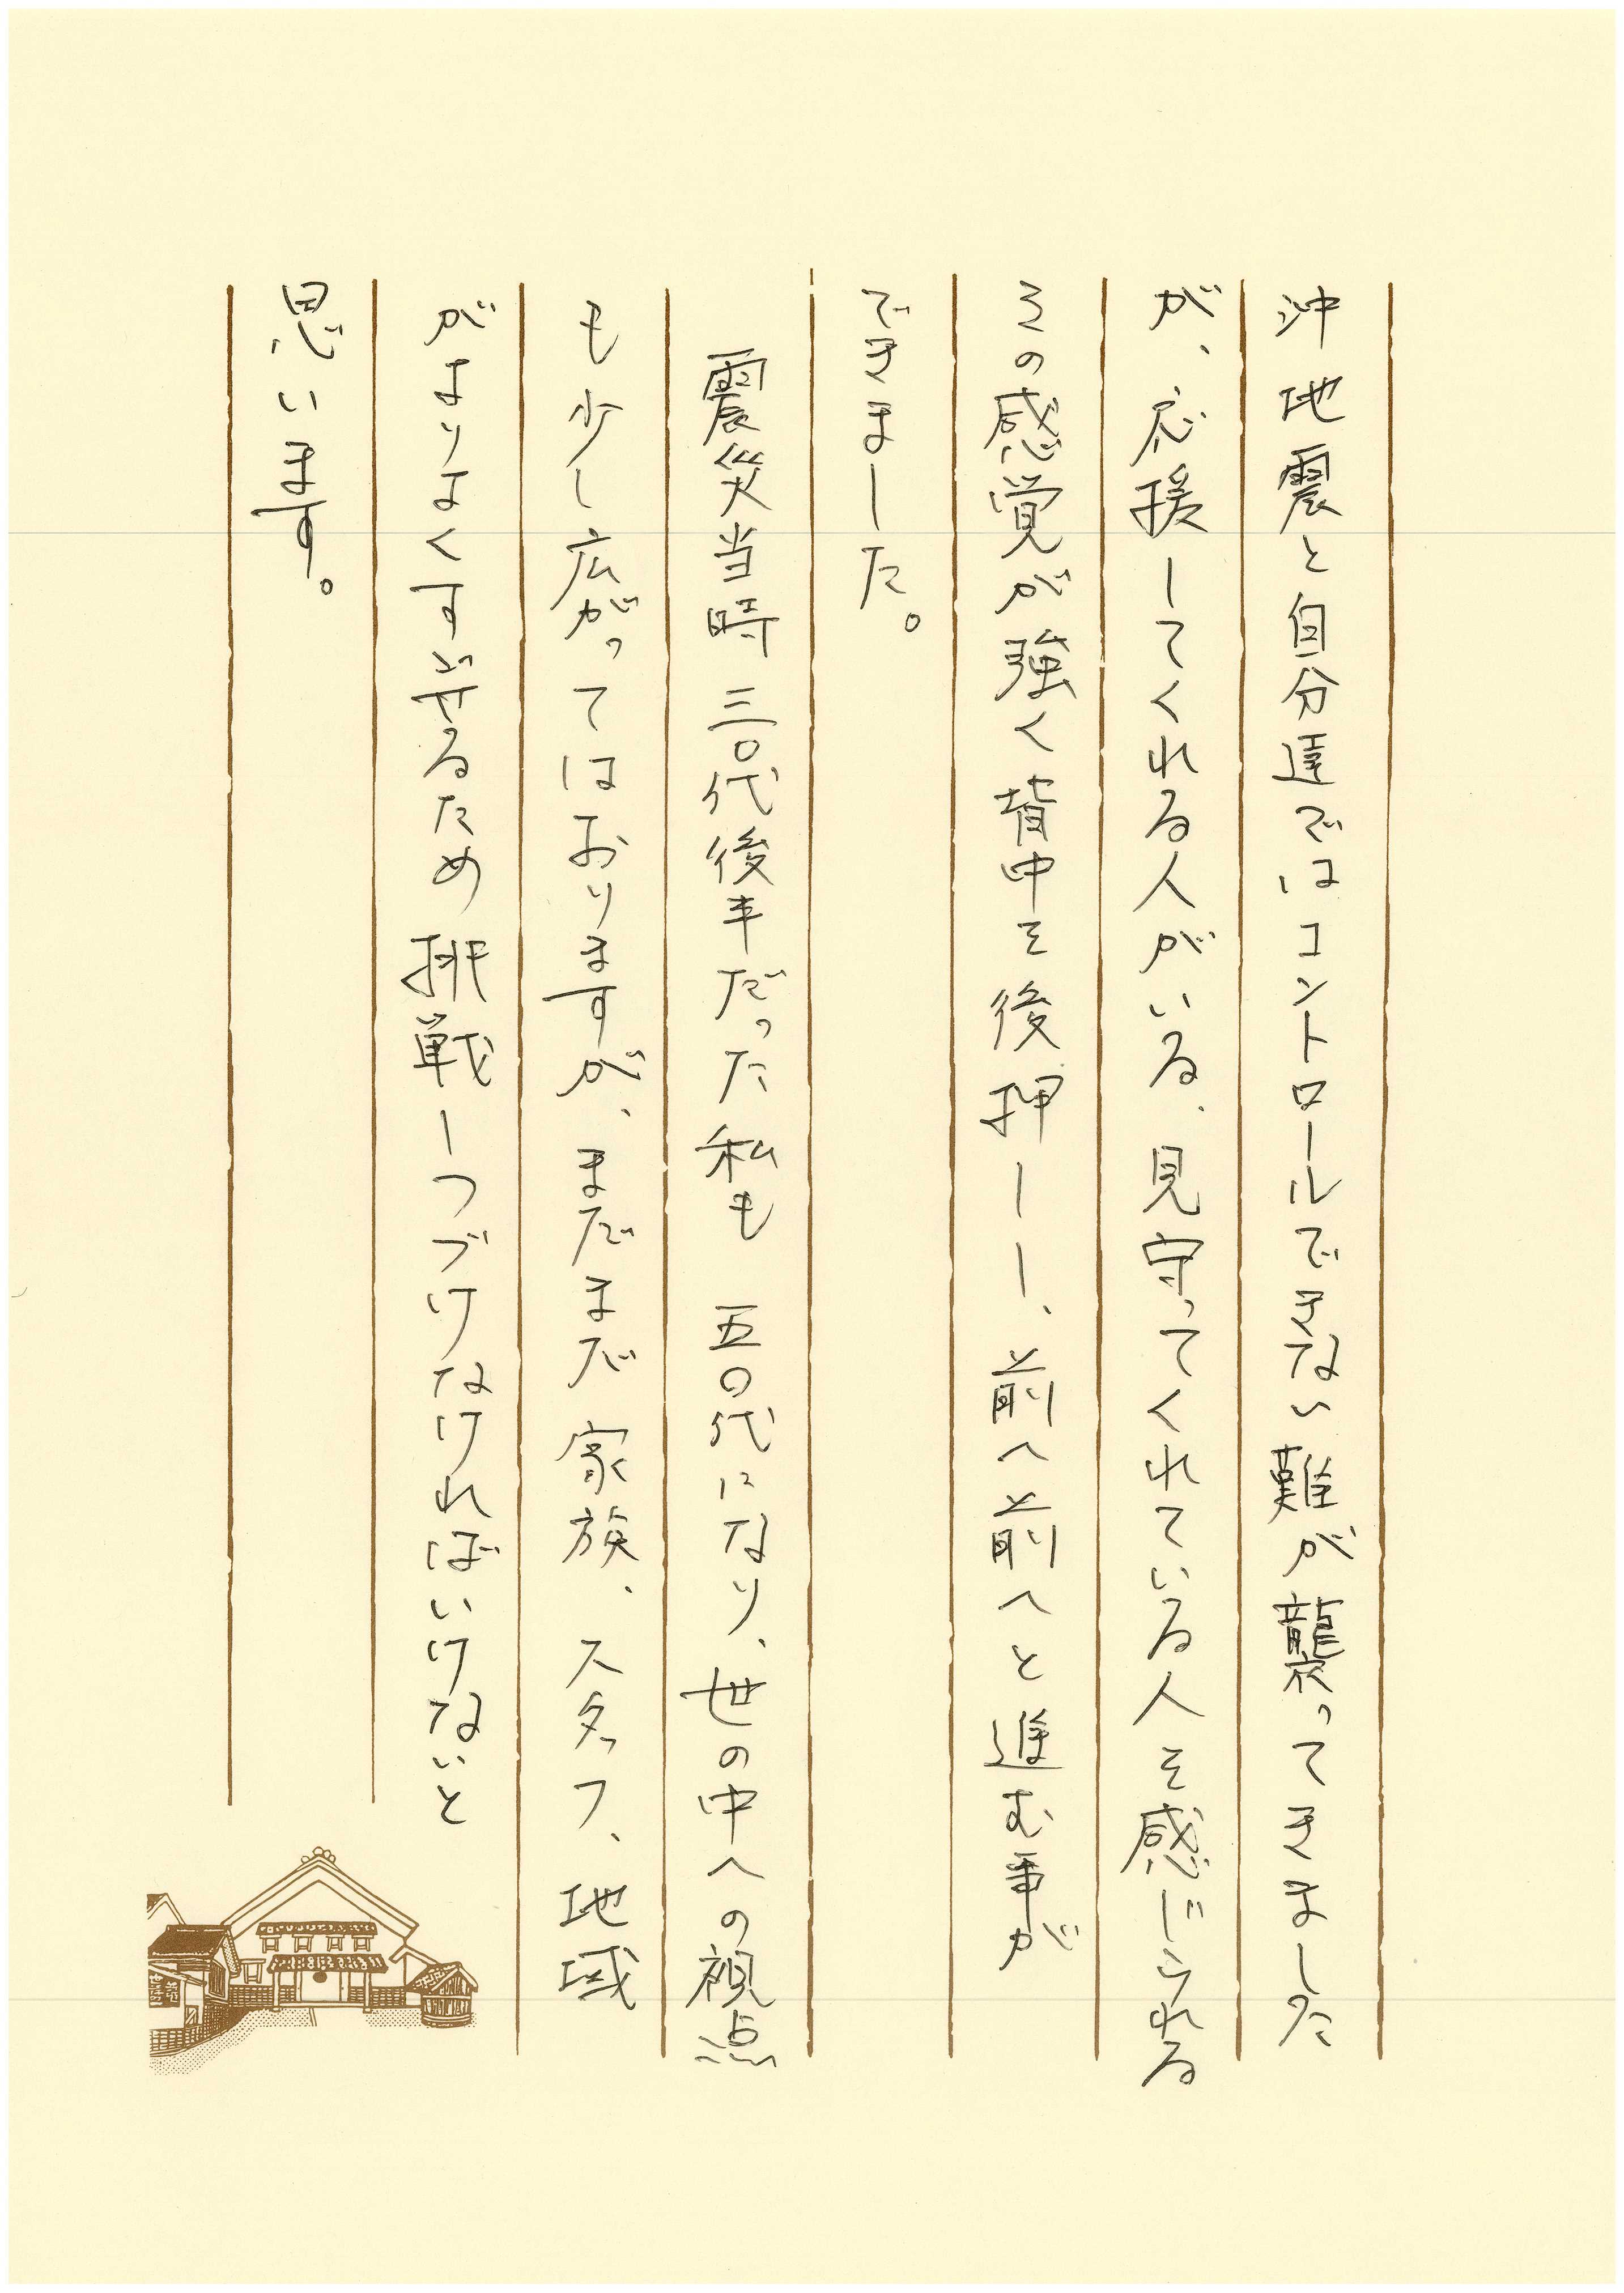 沖地震と自分達ではコントロールできない難が襲ってきました
が、応援してくれる人がいる、見守ってくれている人を感じられる
その感覚が強く背中を後押しし、前へ前へと進む事が
できました。
震災当時三〇代後半だった私も 五〇代になり、世の中への視点
も少し広がってはおりますが、まだまだ家族、スタッフ、地域
がよりよくすごせるため挑戦しつづけなければいけないと
思います。